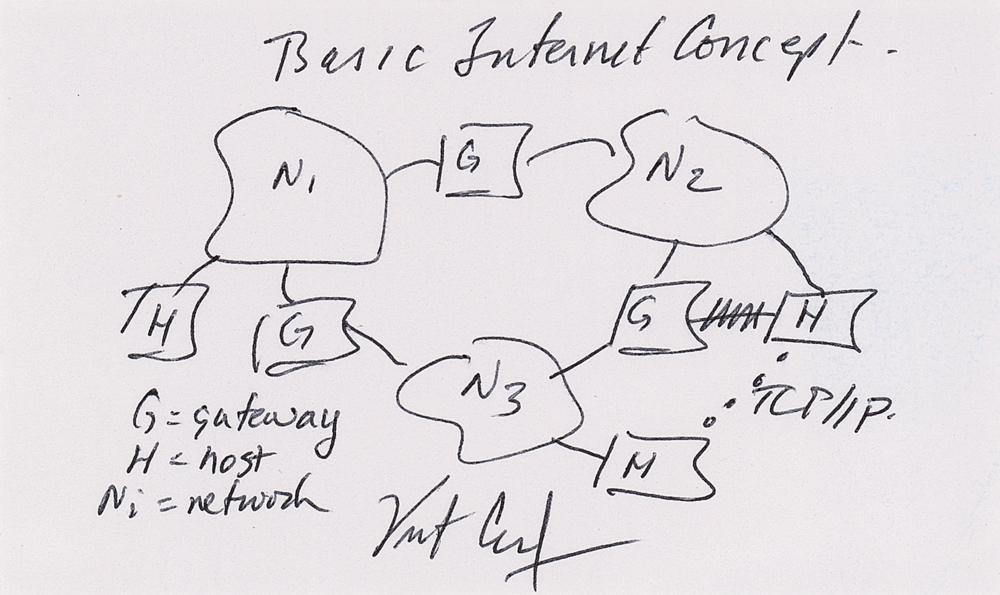 Basic Internet Concept.
N1
G
N2
H
G
G
H
N3
TCP/IP.
G = gateway
H = host
Ni = network
H
Vint Cerf